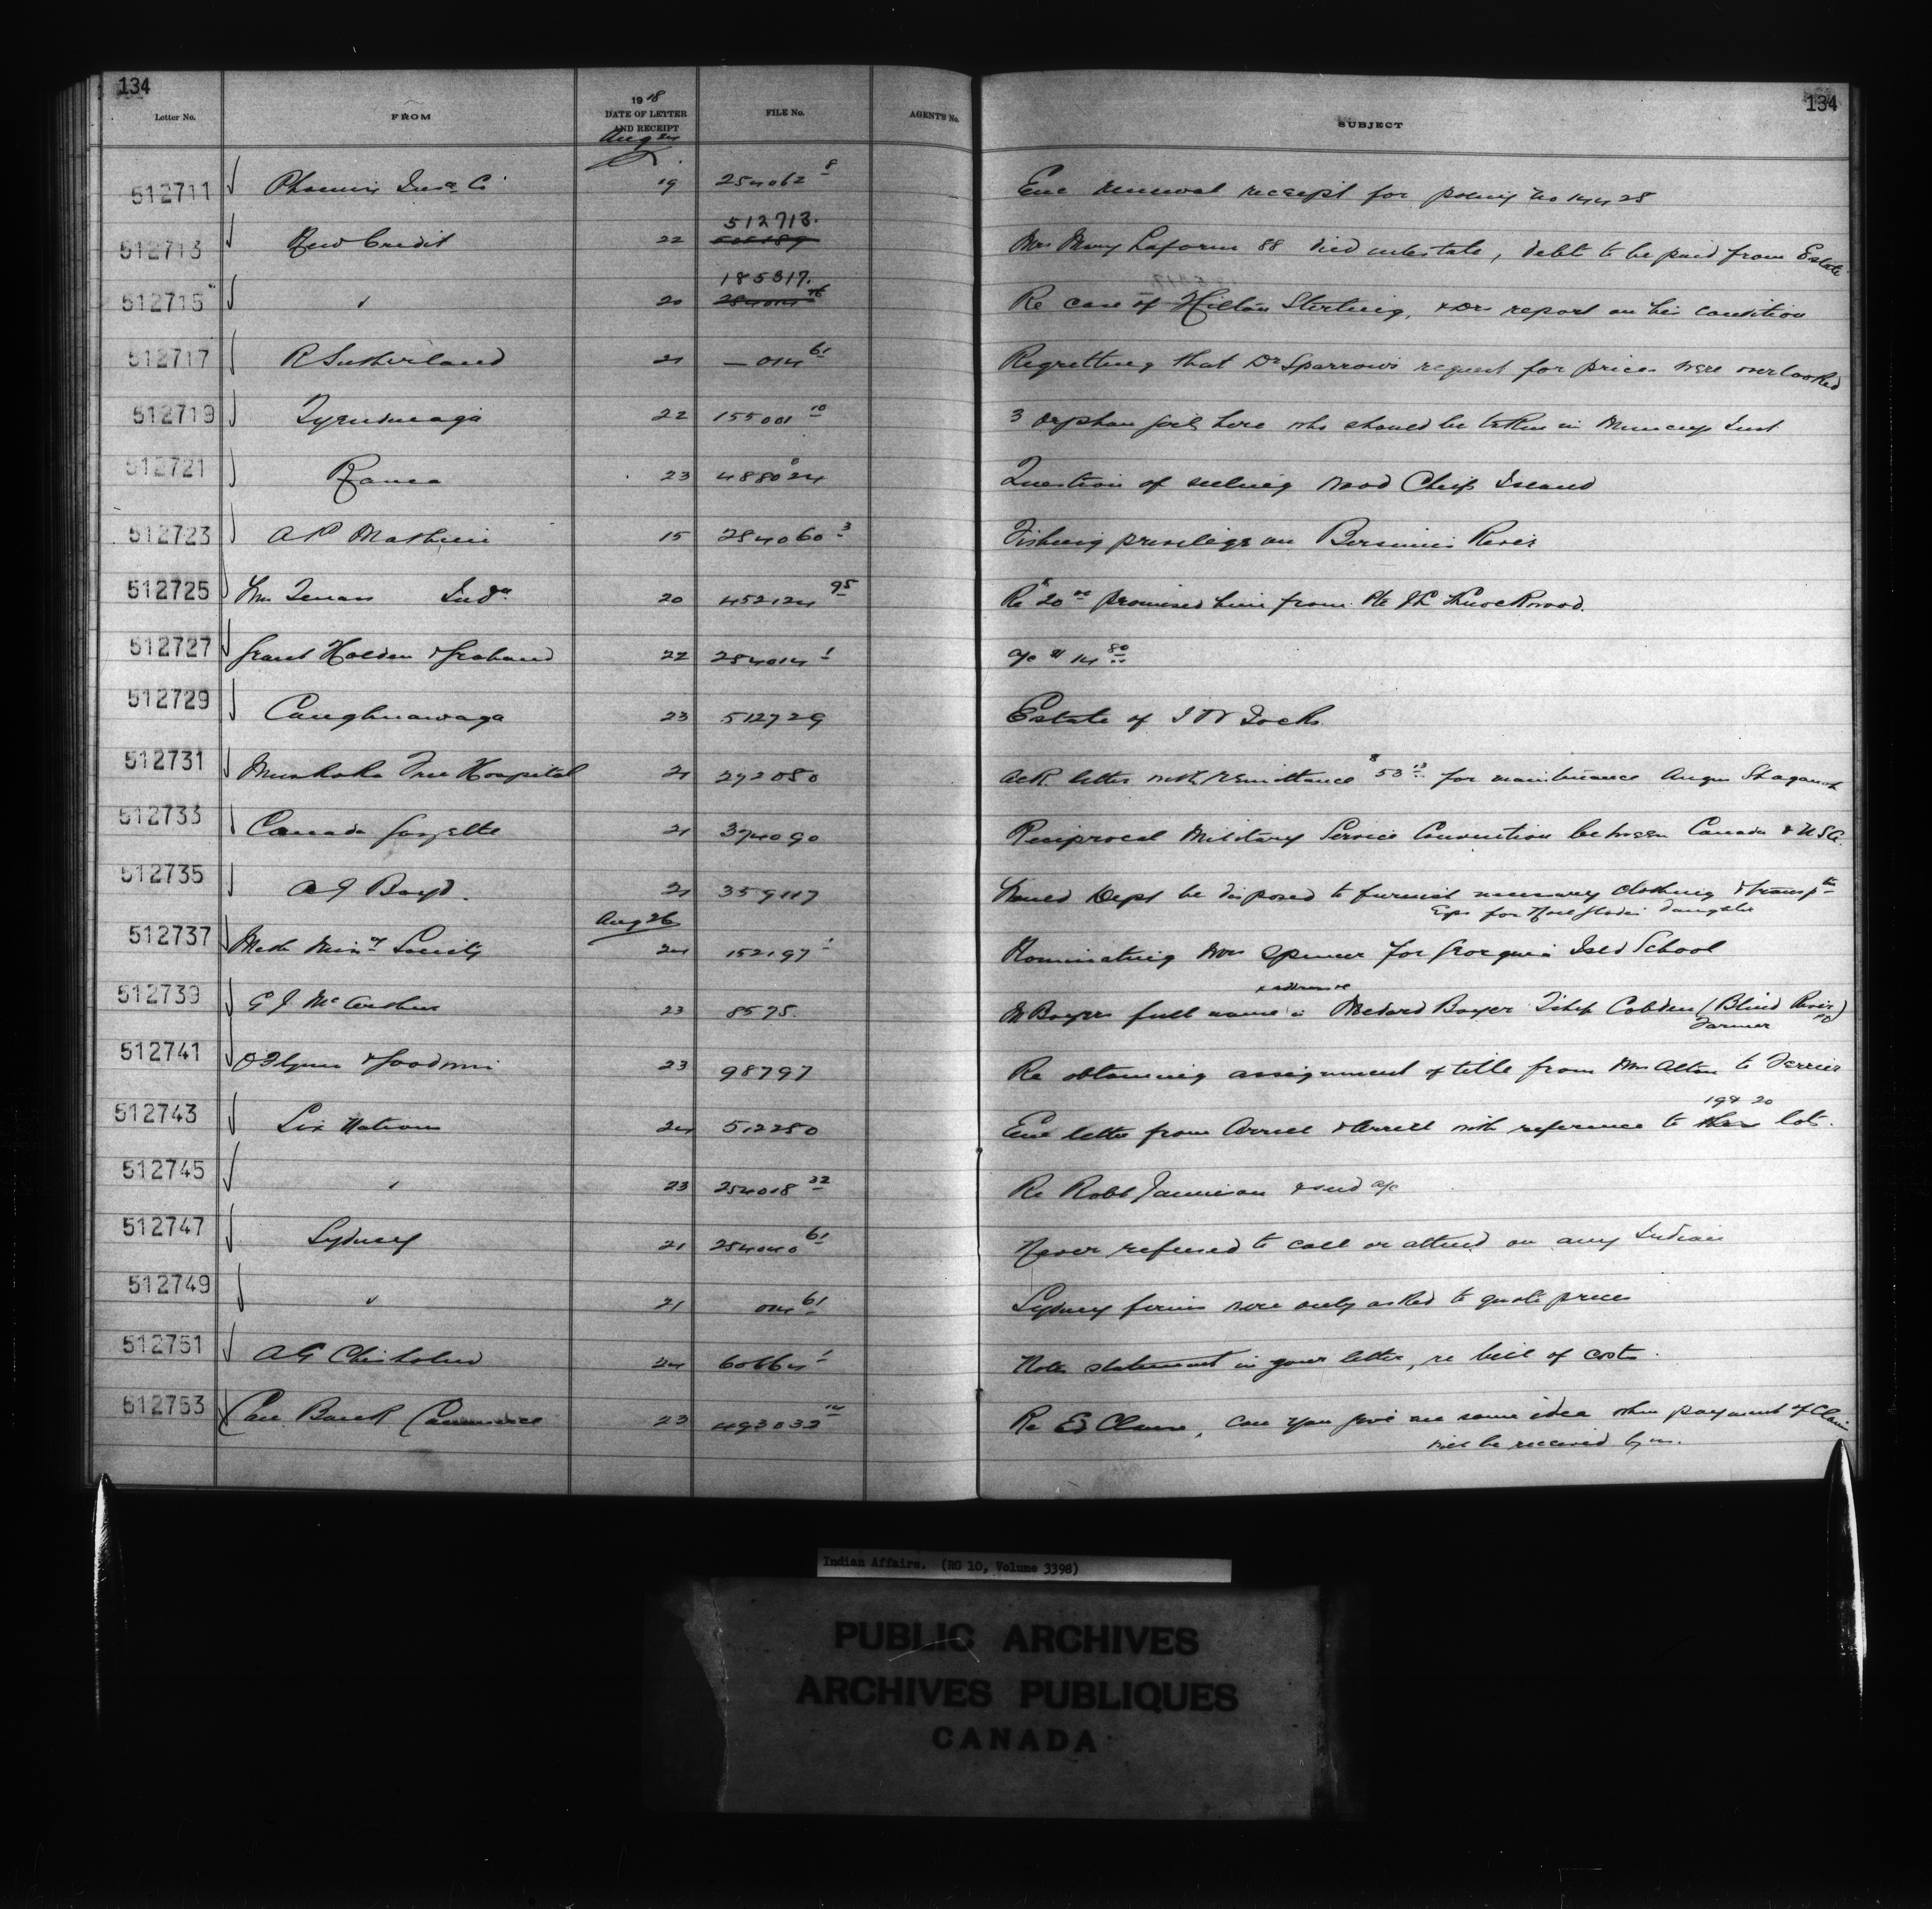 134
134
Letter No. FROM 1918 DATE OF LETTER AND RECEIPT FILE No. AGENTS No. SUBJECT
Aug 24
512711 Phoenix Insce Co 19 254062 8 Enc renewal receipt for policy No 14428
512713 New Credit 22 512713. Mrs Mary Laforme 88 died intestate, debts to be paid from Estate
185317.
512715 " 20 Re case of Hilton Sterling, & Drs report on his condition
512717 R Sutherland 21 — 014 61 Regretting that Dr Sparrows request for prices were overlooked
512719 Tyendinaga 22 155001 10 3 orphan girls here who should be taken in Muncey Inst
512721 Rama 23 488024 Question of selling wood Chief Island
512723 A P Mathieu 15 254060 3 Fishing privilege on Bersimis River
512725 Wm 20 452124 95 Re $20 00 promised him from Pte J L Knockwood.
512727 Grant Holden & Graham 22 254014 1 a/c $14 80
512729 Caughnawaga 23 512729 Estate of Jocks
512731 Muskoka Free Hospital 21 292080 Ack letter with remittance $53 for maintenance Angus
512733 Canada Gazette 21 374090 Reciprocal Military Service Convention between Canada & USA.
512735 Boyd. 21 359117 Would Dept be disposed to furnish necessary clothing & transptn
Exps for daughter
Aug 26
512737 Meth Miny Society 24 152197 1 Nominating Mrs Spencer for Georgina Isld School
& address
512739 McArthur 23 8575. M Boyers full name is Medard Boyer Tshp Cobden (Blind River PO)
Farmer
512741 O'Flynn & Goodwin 23 98797 Re obtaining assignment of title from Mrs Alton to Ferrier
19 & 20
512743 Six Nations 24 512280 Enc letter from Arrell & Arrell with reference to lots.
512745 " 23 254018 32 Re Robt Jamieson & send a/c
512747 Sydney 21 254040 61 Never refused to call or attend on any Indian
512749 " 21 014 61 Sydney firms were only asked to quote prices
512751 A G Chisholm 24 60664 1 Note statement in your letter, re bill of costs.
512753 Can Bank Commerce 23 493033 14 Re Ed Claus, can you give me some idea when payment of Claim
will be received by us.
Indian Affairs. (RG 10, Volume 3398)
PUBLIC ARCHIVES
ARCHIVES PUBLIQUES
CANADA